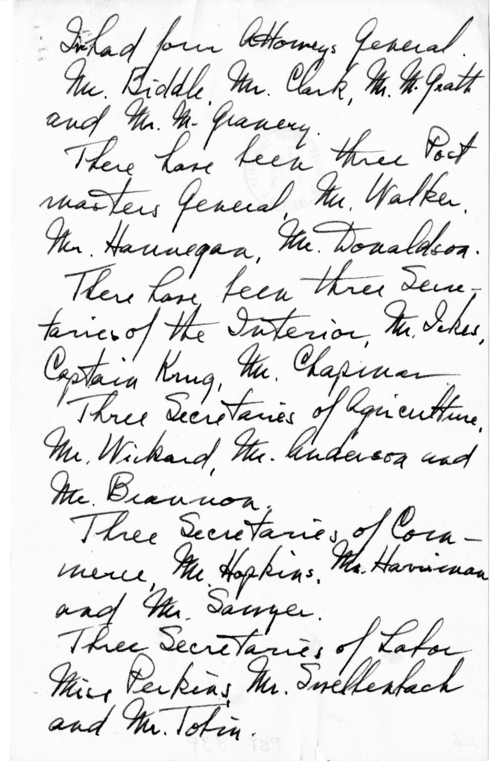 I've had four Attorneys General.
Mr. Biddle, Mr. Clark, Mr. McGrath
and Mr. McGranery.
There have been three Post
masters General, Mr. Walker,
Mr. Hannegan, Mr. Donaldson.
There have been three Secre-
taries of the Interior, Mr. Ickes,
Captain Krug, Mr. Chapman
Three Secretaries of Agriculture,
Mr. Wickard, Mr. Anderson and
Mr. Brannon.
Three Secretaries of Com-
merce, Mr. Hopkins, Mr. Harriman
and Mr. Sawyer.
Three Secretaries of Labor
Miss Perkins, Mr. Swellenbach
and Mr. Tobin.